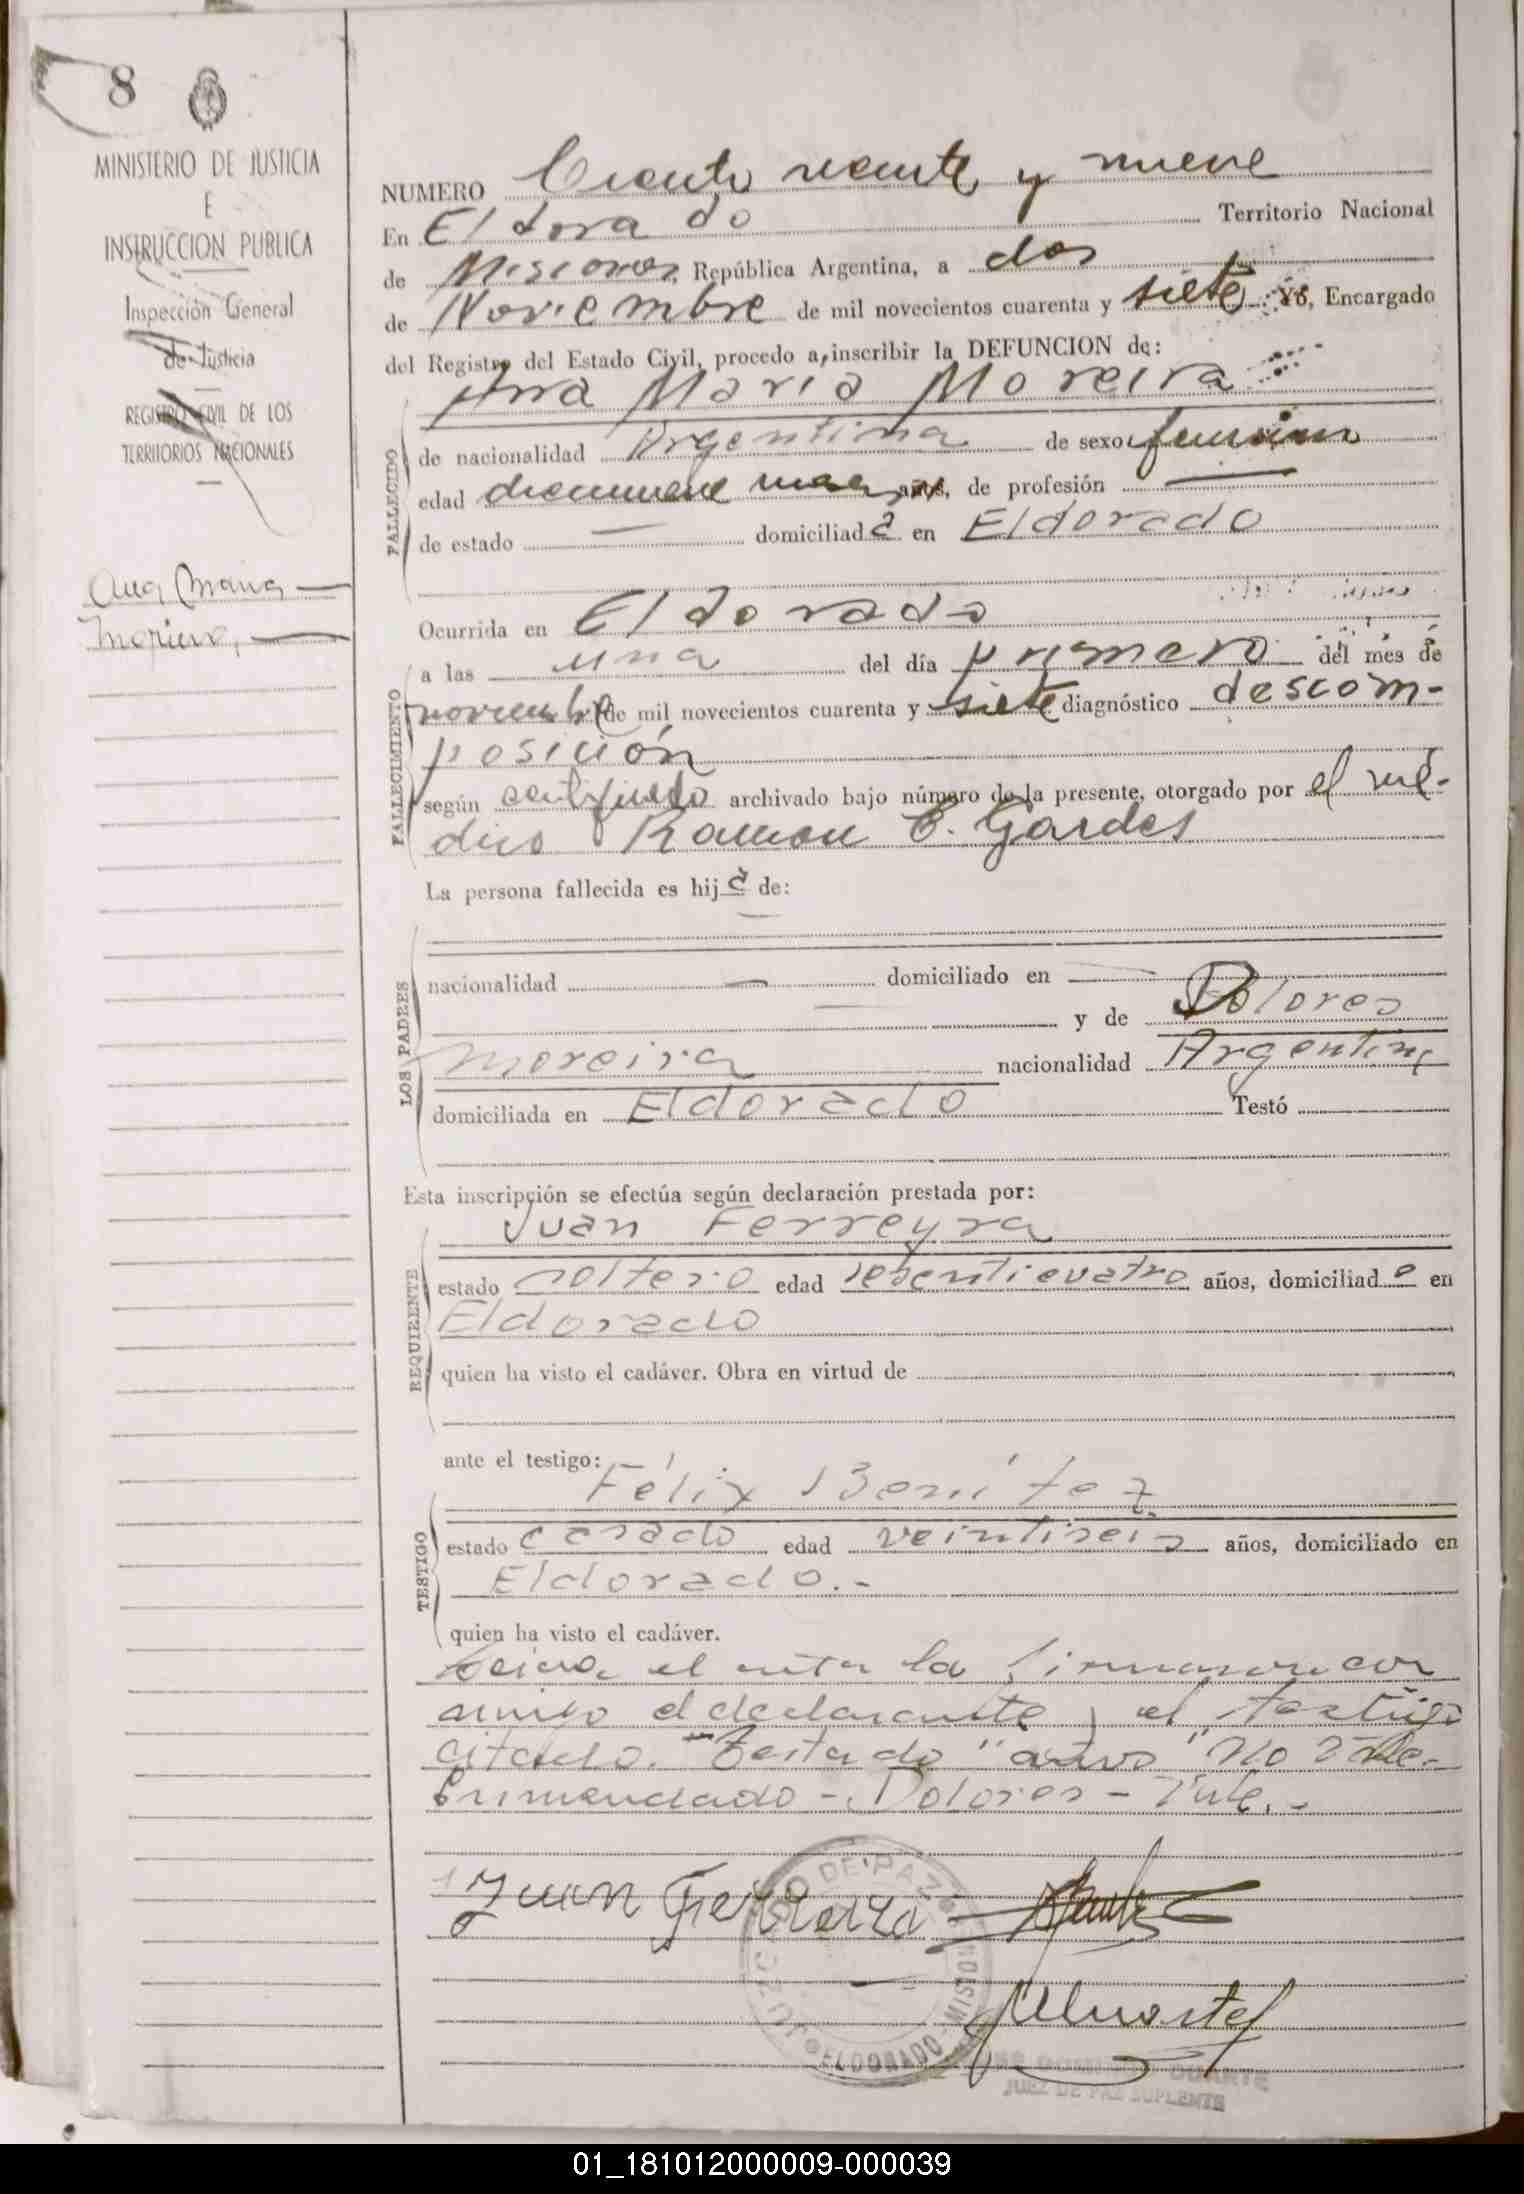 8
MINISTERIO DE JUSTICIA
E
INSTRUCCION PUBLICA
Inspección General
de Justicia
REGISTRO CIVIL DE LOS
TERRITORIOS NACIONALES
Ana Maria
Moreira,
NUMERO Ciento veinte y nueve
En Eldorado Territorio Nacional
de Misiones, República Argentina, a dos
de Noviembre de mil novecientos cuarenta y siete Yo, Encargado
del Registro del Estado Civil, procedo a inscribir la DEFUNCION de:
Ana Maria Moreira
FALLECIDO
de nacionalidad Argentina de sexo femenino
edad diecinueve meses años, de profesión —
de estado — domiciliada en Eldorado
FALLECIMIENTO
Ocurrida en Eldorado
a las una del día primero del mes de
noviembre de mil novecientos cuarenta y siete diagnóstico descom-
posición
según certificado archivado bajo número de la presente, otorgado por el mé-
dico Ramon E. Gardes
La persona fallecida es hija de:
LOS PADRES
nacionalidad — domiciliado en —
y de Dolores
Moreira nacionalidad Argentina
domiciliada en Eldorado Testó
Esta inscripción se efectúa según declaración prestada por:
REQUIRENTE
Juan Ferreyra
estado soltero edad sesenticuatro años, domiciliado en
Eldorado
quien ha visto el cadáver. Obra en virtud de
ante el testigo:
TESTIGO
Félix Benítez
estado casado edad veintiseis años, domiciliado en
Eldorado.-
quien ha visto el cadáver.
Leida el acta la firmaron con
migo el declarante y el testigo
citado. Testado "años" No Vale.
Enmendado - Dolores - Vale.-
Juan Ferreira
JUZGADO DE PAZ
ELDORADO - MISIONES
DUARTE
JUEZ DE PAZ SUPLENTE
01_181012000009-000039